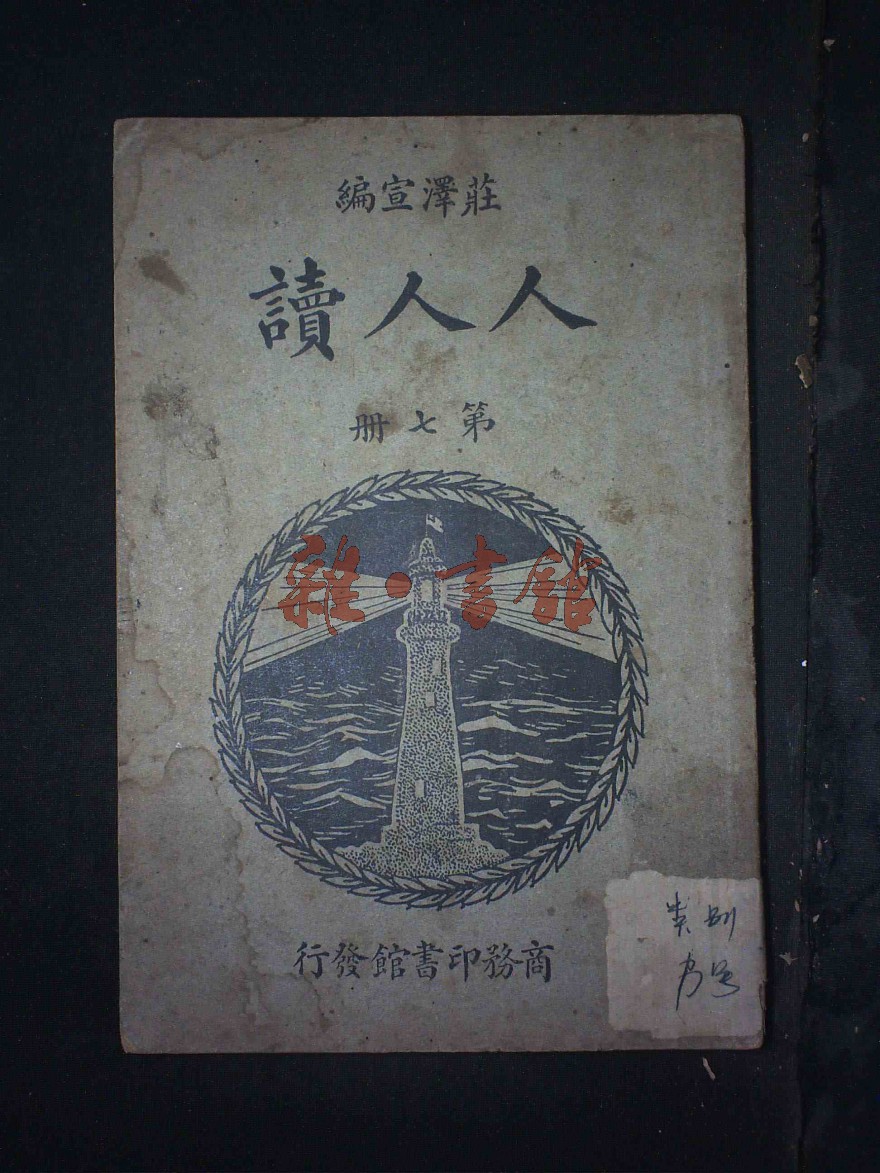 莊澤宣編
人人讀
第七冊
雜·書館
商務印書館發行
类别